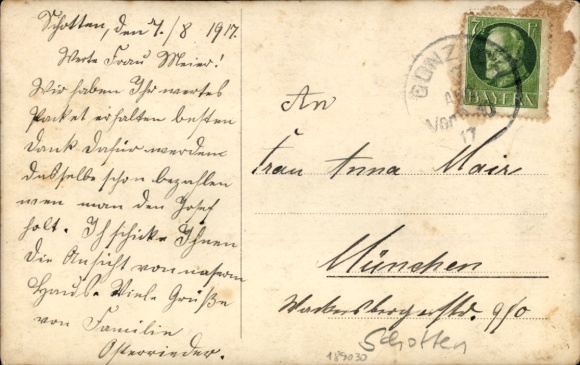 Schotten, den 7./8 1917.
Werte Frau Meier!
Wir haben Ihr wertes
Packet erhalten besten
Dank dafür werden
dasselbe schon bezahlen
wen man den Josef
holt. Ich schicke Ihnen
die Ansicht von unserm
Haus. Viele Grüße
von Familie
Osterrieder.
BAYERN
17
An
Frau Anna Mair
München
Wackersbergerstr. 9/0
Schotten
189030